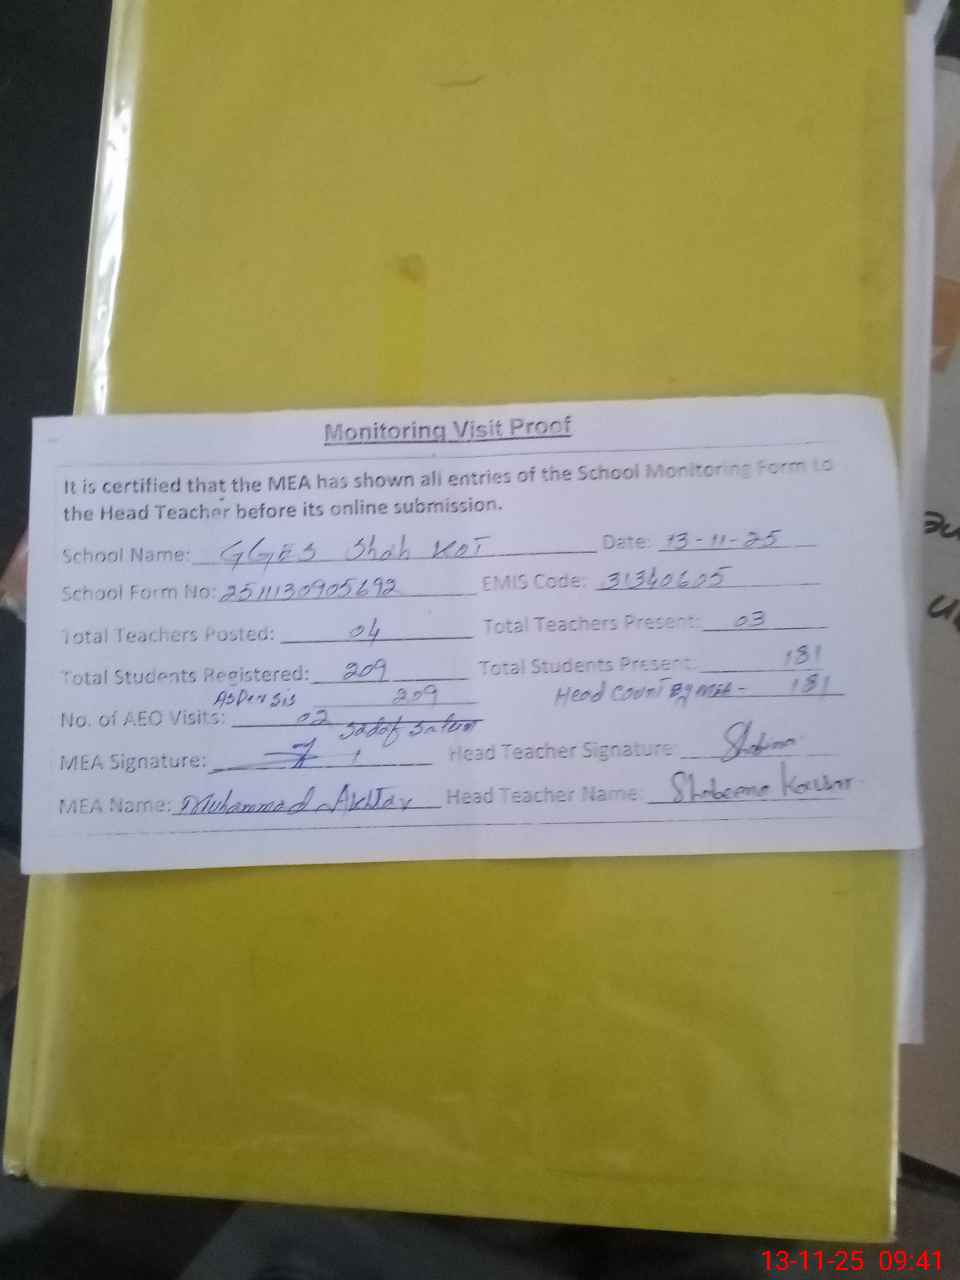 Monitoring Visit Proof
It is certified that the MEA has shown all entries of the School Monitoring Form to
the Head Teacher before its online submission.
School Name: GGES Shah KOT Date: 13-11-25
School Form No: 2511130905692 EMIS Code: 31340605
Total Teachers Posted: 04 Total Teachers Present: 03
Total Students Registered: 209 Total Students Present: 181
AsPer sis 209 Head Count By MEA - 181
No. of AEO Visits: 02 Sadaf
MEA Signature: Head Teacher Signature:
MEA Name: Muhammad Akhtar Head Teacher Name: Shabeena Kousar
13-11-25 09:41